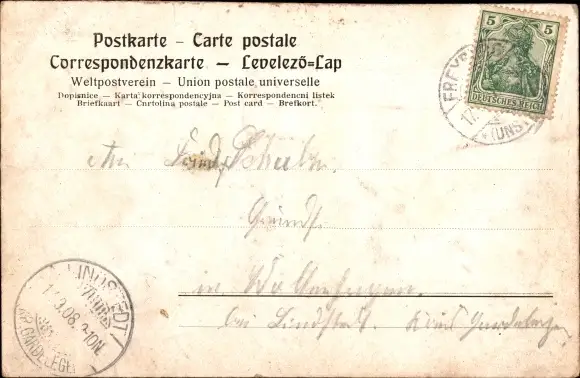 Postkarte – Carte postale
Correspondenzkarte – Levelező-Lap
Weltpostverein – Union postale universelle
Dopisnice – Karta korrespondencyjna – Korrespondencni listek
Briefkaart – Cnrtolina postale – Post card – Brefkort.
5 5
DEUTSCHES REICH
FREYB
(UNST
An
in
bei Lindstedt. Kreis Gardelegen
LINDSTEDT
.08. 10N
GARDELEGEN